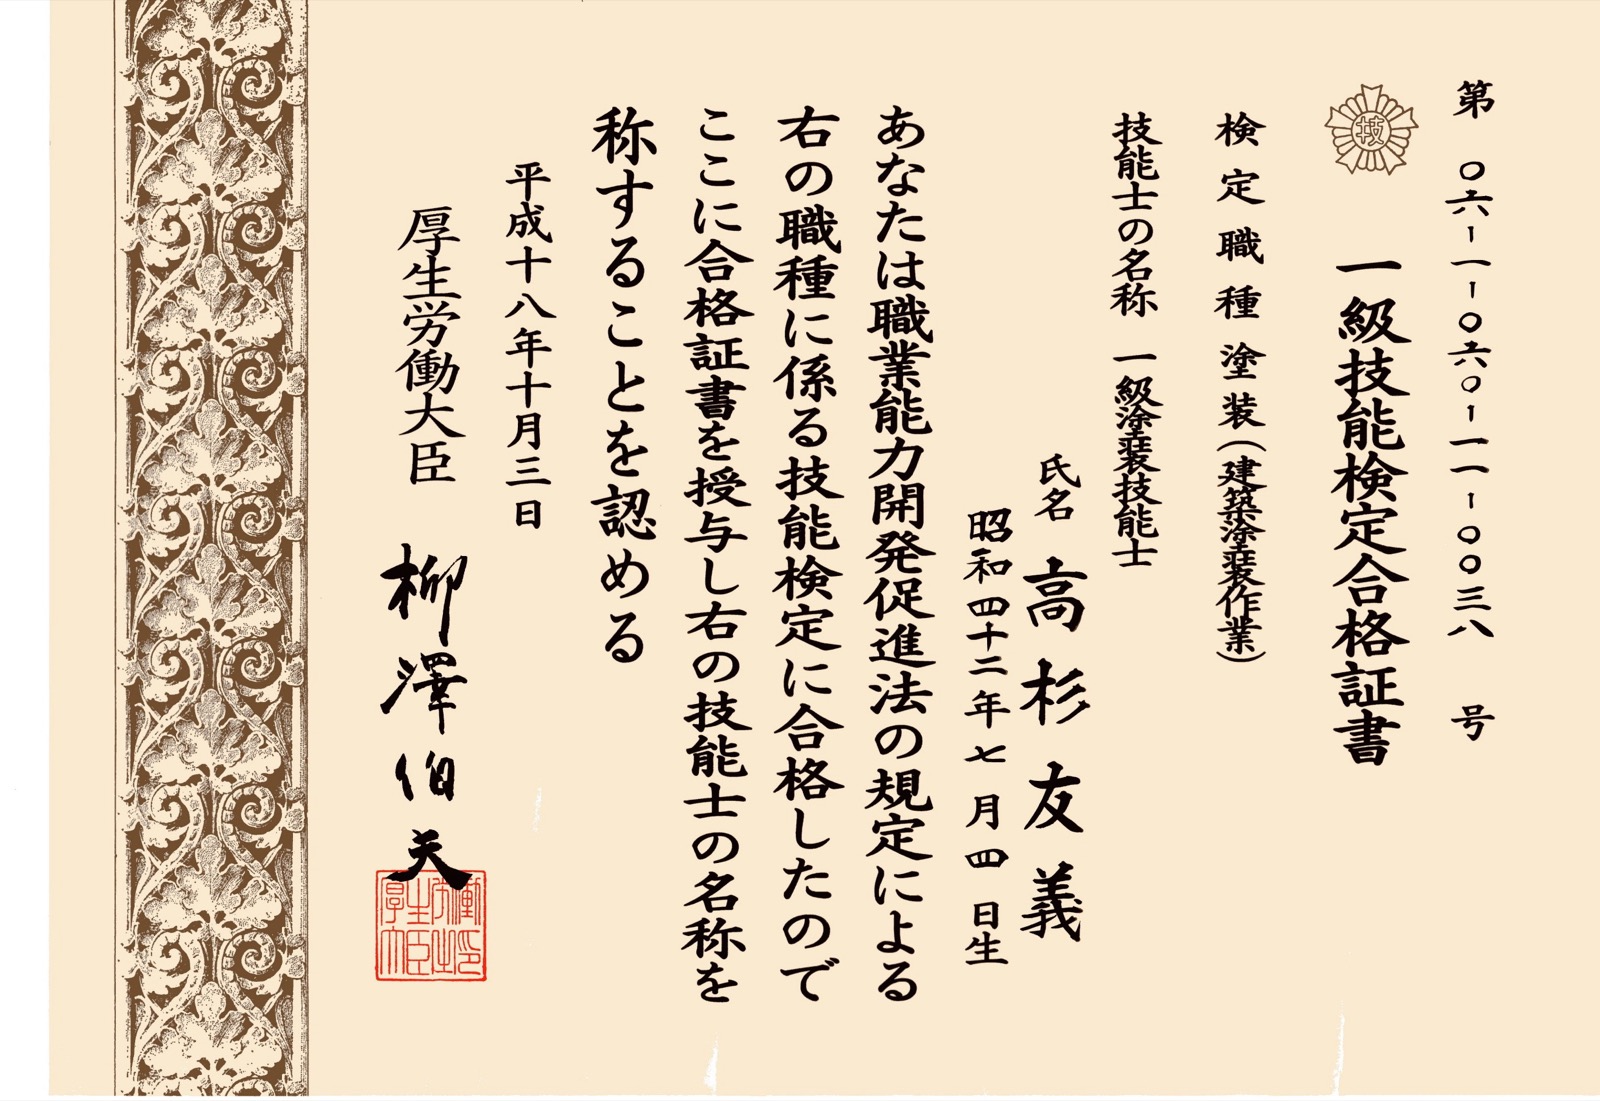 第 〇六-一-〇六〇-一一-〇〇三八 号
技
一級技能検定合格証書
検定職種 塗装(建築塗装作業)
技能士の名称 一級塗装技能士
氏名 高杉友義
昭和四十二年七月四日生
あなたは職業能力開発促進法の規定による
右の職種に係る技能検定に合格したので
ここに合格証書を授与し右の技能士の名称を
称することを認める
平成十八年十月三日
厚生労働大臣 柳澤伯夫
厚生労働大臣之印